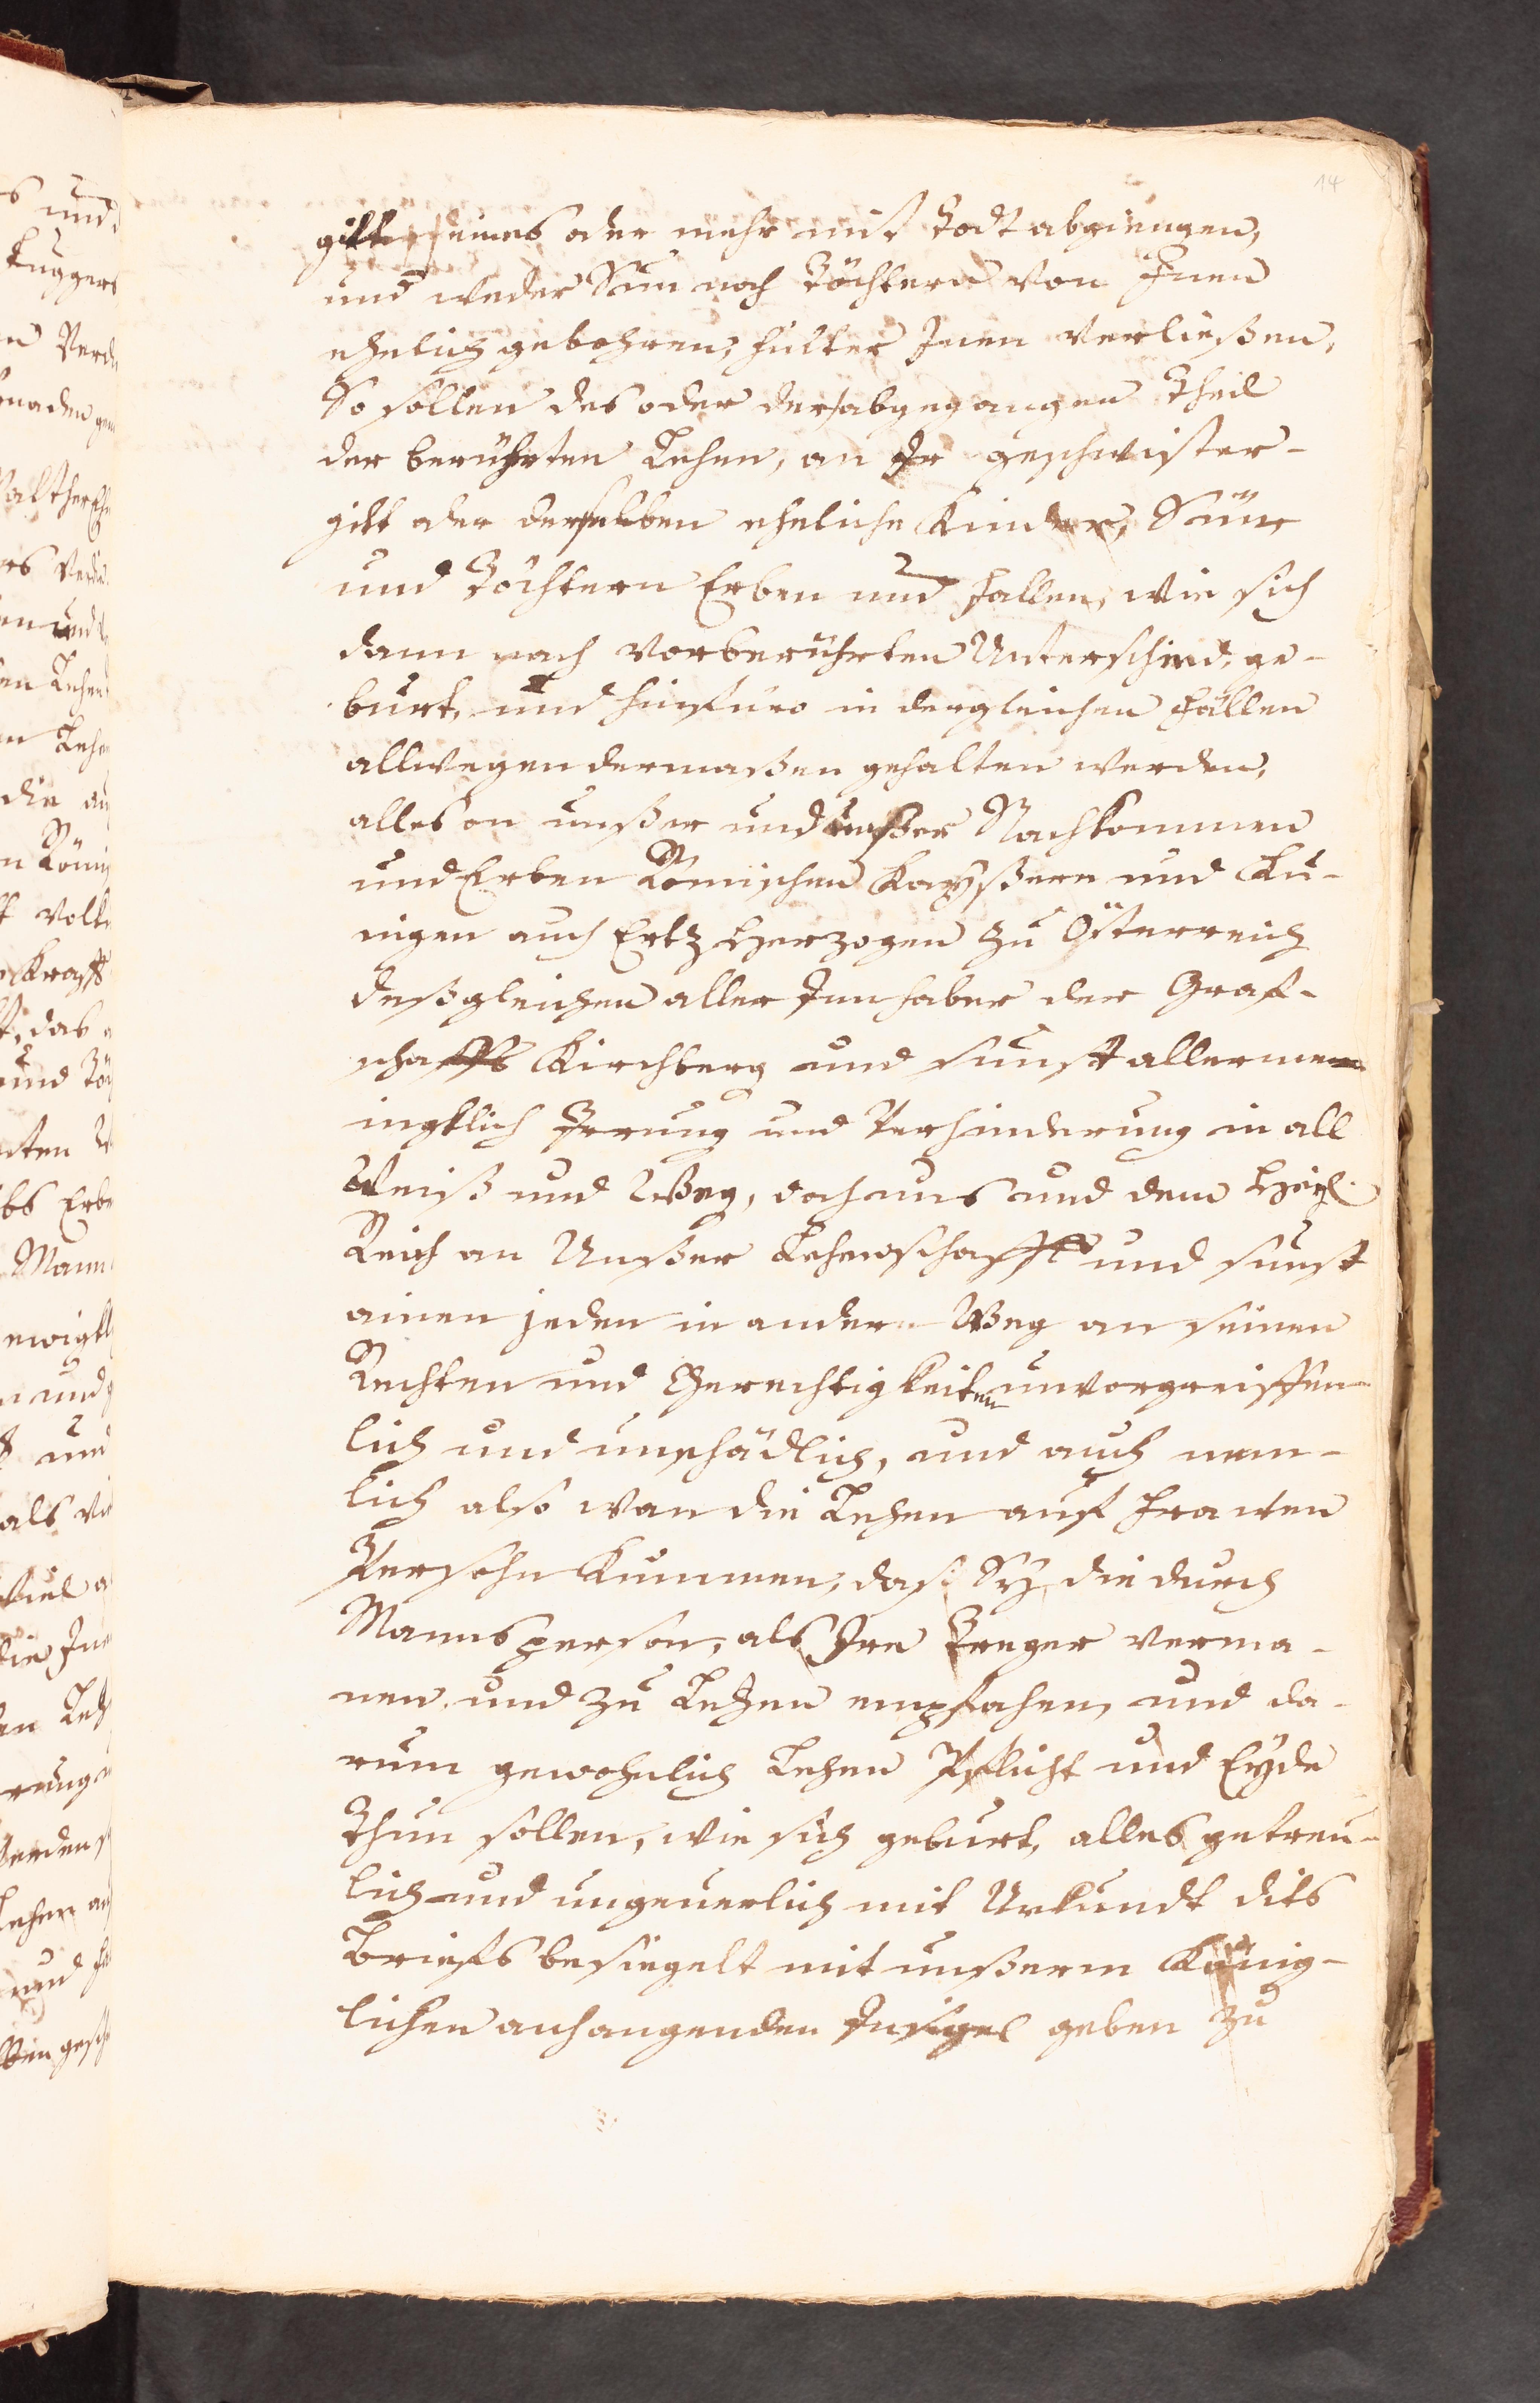 14
gitte, eines oder mehr mit Todt abgiengen,
und weder Sün noch Töchtern von Inen
ehelich gebohren, hinter Inen verließen,
So sollen des oder der abgegangen Theil
der berührten Lehen, an Ir geschwister-
gitt oder derselben eheliche Kinder, Süne
und Töchtern Erben und fallen, wie sich
dann nach vorberührten Unterschied, ge-
burt, und hinfüro in dergleichen fällen
allwegen dermaßen gehalten werden,
alles on unßer und unßer Nachkommen
und Erben Römischen Kayßern und Kü-
nigen auch Ertz Herzogen zu Österreich
deßgleichen aller Innhaber der Graf-
schafft Kirchberg und sunst allermen
ingklich Irrung und Verhinderung in all
Weiß und Weg, doch uns und dem Heyl.
Reich an Unßer Lehenschafft und sunst
ainen jeden in ander Weg an seinen
Rechten und Gerechtigkeiten unvorgreiffen-
lich und unschädlich, und auch nem-
lich also wan die Lehen auf Frawen
Persohn kummen, das Sy die durch
Mannsperson, als Ire Treger verma-
nen und zu Lehen empfahen, und da-
rum gewohnlich Lehen Pflicht und Eyde
Thun sollen, wie sich geburt, alles getreu-
lich und ungeuerlich mit Urkundt dits
Briefs besiegelt mit unßerm König-
lichen anhangenden Insigel geben zu